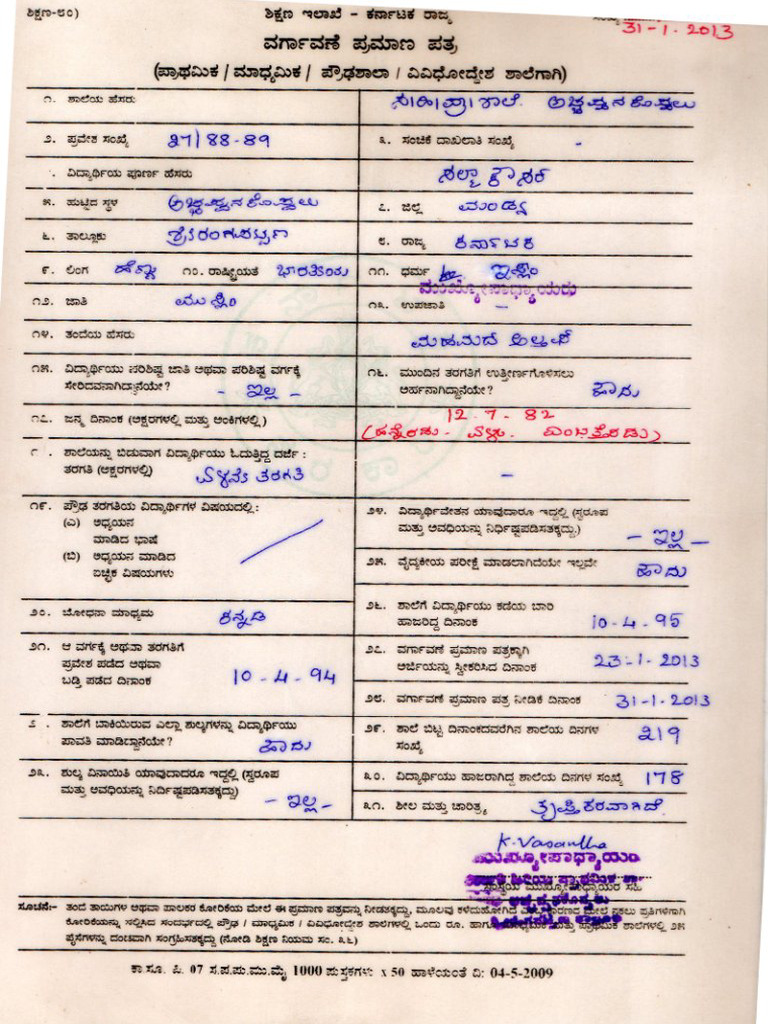 ಶಿಕ್ಷಣ-೮೦)
ಶಿಕ್ಷಣ ಇಲಾಖೆ - ಕರ್ನಾಟಕ ರಾಜ್ಯ
31-1-2013
ವರ್ಗಾವಣೆ ಪ್ರಮಾಣ ಪತ್ರ
(ಪ್ರಾಥಮಿಕ / ಮಾಧ್ಯಮಿಕ / ಪ್ರೌಢಶಾಲಾ / ವಿವಿಧೋದ್ದೇಶ ಶಾಲೆಗಾಗಿ)
೧. ಶಾಲೆಯ ಹೆಸರು ಸ।ಹಿ।ಪ್ರಾ।ಶಾಲೆ. ಅಚ್ಚಪ್ಪನಕೊಪ್ಪಲು
೨. ಪ್ರವೇಶ ಸಂಖ್ಯೆ 27/88-89
೩. ಸಂಚಿಕೆ ದಾಖಲಾತಿ ಸಂಖ್ಯೆ -
. ವಿದ್ಯಾರ್ಥಿಯ ಪೂರ್ಣ ಹೆಸರು ಸಲ್ಮಾ ಕೌಸರ್
೫. ಹುಟ್ಟಿದ ಸ್ಥಳ ಅಚ್ಚಪ್ಪನಕೊಪ್ಪಲು
೭. ಜಿಲ್ಲೆ ಮಂಡ್ಯ
೬. ತಾಲ್ಲೂಕು ಶ್ರೀರಂಗಪಟ್ಟಣ
೮. ರಾಜ್ಯ ಕರ್ನಾಟಕ
೯. ಲಿಂಗ ಹೆಣ್ಣು ೧೦. ರಾಷ್ಟ್ರೀಯತೆ ಭಾರತೀಯ
೧೧. ಧರ್ಮ ಇಸ್ಲಾಂ
ಮುಖ್ಯೋಪಾಧ್ಯಾಯರು
೧೨. ಜಾತಿ ಮುಸ್ಲಿಂ
೧೩. ಉಪಜಾತಿ -
೧೪. ತಂದೆಯ ಹೆಸರು ಮಹಮದ್
೧೫. ವಿದ್ಯಾರ್ಥಿಯು ಪರಿಶಿಷ್ಟ ಜಾತಿ ಅಥವಾ ಪರಿಶಿಷ್ಟ ವರ್ಗಕ್ಕೆ
ಸೇರಿದವನಾಗಿದ್ದಾನೆಯೇ? - ಇಲ್ಲ -
೧೬. ಮುಂದಿನ ತರಗತಿಗೆ ಉತ್ತೀರ್ಣಗೊಳಿಸಲು
ಅರ್ಹನಾಗಿದ್ದಾನೆಯೇ? ಹೌದು
೧೭. ಜನ್ಮ ದಿನಾಂಕ (ಅಕ್ಷರಗಳಲ್ಲಿ ಮತ್ತು ಅಂಕಿಗಳಲ್ಲಿ) 12.7.82
(ಹನ್ನೆರಡು - ಏಳು - ಎಂಬತ್ತೆರಡು)
೧ . ಶಾಲೆಯನ್ನು ಬಿಡುವಾಗ ವಿದ್ಯಾರ್ಥಿಯು ಓದುತ್ತಿದ್ದ ದರ್ಜೆ :
ತರಗತಿ (ಅಕ್ಷರಗಳಲ್ಲಿ) ಏಳನೇ ತರಗತಿ -
೧೯. ಪ್ರೌಢ ತರಗತಿಯ ವಿದ್ಯಾರ್ಥಿಗಳ ವಿಷಯದಲ್ಲಿ :
(ಎ) ಅಧ್ಯಯನ
ಮಾಡಿದ ಭಾಷೆ
(ಬಿ) ಅಧ್ಯಯನ ಮಾಡಿದ
ಐಚ್ಛಿಕ ವಿಷಯಗಳು
೨೪. ವಿದ್ಯಾರ್ಥಿವೇತನ ಯಾವುದಾದರೂ ಇದ್ದಲ್ಲಿ (ಸ್ವರೂಪ
ಮತ್ತು ಅವಧಿಯನ್ನು ನಿರ್ಧಿಷ್ಟಪಡಿಸತಕ್ಕದ್ದು.) - ಇಲ್ಲ -
೨೫. ವೈದ್ಯಕೀಯ ಪರೀಕ್ಷೆ ಮಾಡಲಾಗಿದೆಯೇ ಇಲ್ಲವೇ ಹೌದು
೨೦. ಬೋಧನಾ ಮಾಧ್ಯಮ ಕನ್ನಡ
೨೬. ಶಾಲೆಗೆ ವಿದ್ಯಾರ್ಥಿಯು ಕಡೆಯ ಬಾರಿ
ಹಾಜರಿದ್ದ ದಿನಾಂಕ 10-4-95
೨೧. ಆ ವರ್ಗಕ್ಕೆ ಅಥವಾ ತರಗತಿಗೆ
ಪ್ರವೇಶ ಪಡೆದ ಅಥವಾ
ಬಡ್ತಿ ಪಡೆದ ದಿನಾಂಕ 10-4-94
೨೭. ವರ್ಗಾವಣೆ ಪ್ರಮಾಣ ಪತ್ರಕ್ಕಾಗಿ
ಅರ್ಜಿಯನ್ನು ಸ್ವೀಕರಿಸಿದ ದಿನಾಂಕ 23-1-2013
೨೮. ವರ್ಗಾವಣೆ ಪ್ರಮಾಣ ಪತ್ರ ನೀಡಿಕೆ ದಿನಾಂಕ 31-1-2013
೭ . ಶಾಲೆಗೆ ಬಾಕಿಯಿರುವ ಎಲ್ಲಾ ಶುಲ್ಕಗಳನ್ನು ವಿದ್ಯಾರ್ಥಿಯು
ಪಾವತಿ ಮಾಡಿದ್ದಾನೆಯೇ? ಹೌದು
೨೯. ಶಾಲೆ ಬಿಟ್ಟ ದಿನಾಂಕದವರೆಗಿನ ಶಾಲೆಯ ದಿನಗಳ
ಸಂಖ್ಯೆ 219
೨೩. ಶುಲ್ಕ ವಿನಾಯಿತಿ ಯಾವುದಾದರೂ ಇದ್ದಲ್ಲಿ (ಸ್ವರೂಪ
ಮತ್ತು ಅವಧಿಯನ್ನು ನಿರ್ದಿಷ್ಟಪಡಿಸತಕ್ಕದ್ದು) - ಇಲ್ಲ -
೩೦. ವಿದ್ಯಾರ್ಥಿಯು ಹಾಜರಾಗಿದ್ದ ಶಾಲೆಯ ದಿನಗಳ ಸಂಖ್ಯೆ 178
೩೧. ಶೀಲ ಮತ್ತು ಚಾರಿತ್ರ್ಯ ತೃಪ್ತಿಕರವಾಗಿದೆ.
K. Vasantha
ಮುಖ್ಯೋಪಾಧ್ಯಾಯರು
ಶಾಲೆಯ ಮುಖ್ಯೋಪಾಧ್ಯಾಯರ ಸಹಿ
ಸೂಚನೆ:- ತಂದೆ ತಾಯಿಗಳ ಅಥವಾ ಪಾಲಕರ ಕೋರಿಕೆಯ ಮೇಲೆ ಈ ಪ್ರಮಾಣ ಪತ್ರವನ್ನು ನೀಡತಕ್ಕದ್ದು, ಮೂಲವು ಕಳೆದುಹೋಗಿದೆ ಮೇಲೆ ನಕಲು ಪ್ರತಿಗಳಿಗಾಗಿ
ಕೋರಿಕೆಯನ್ನು ಸಲ್ಲಿಸಿದ ಸಂದರ್ಭದಲ್ಲಿ ಪ್ರೌಢ / ಮಾಧ್ಯಮಿಕ / ವಿವಿಧೋದ್ದೇಶ ಶಾಲೆಗಳಲ್ಲಿ ಒಂದು ರೂ. ಹಾಗೂ ಮತ್ತು ಪ್ರಾಥಮಿಕ ಶಾಲೆಗಳಲ್ಲಿ ೨೫
ಪೈಸೆಗಳನ್ನು ದಂಡವಾಗಿ ಸಂಗ್ರಹಿಸತಕ್ಕದ್ದು (ನೋಡಿ ಶಿಕ್ಷಣ ನಿಯಮ ಸಂ. ೩೬)
ಕಾ.ಸೂ. ಪಿ. 07 ಸ.ಪ.ಪು.ಮು.ಮೈ 1000 ಪುಸ್ತಕಗಳು x 50 ಹಾಳೆಯಂತೆ ದಿ: 04-5-2009